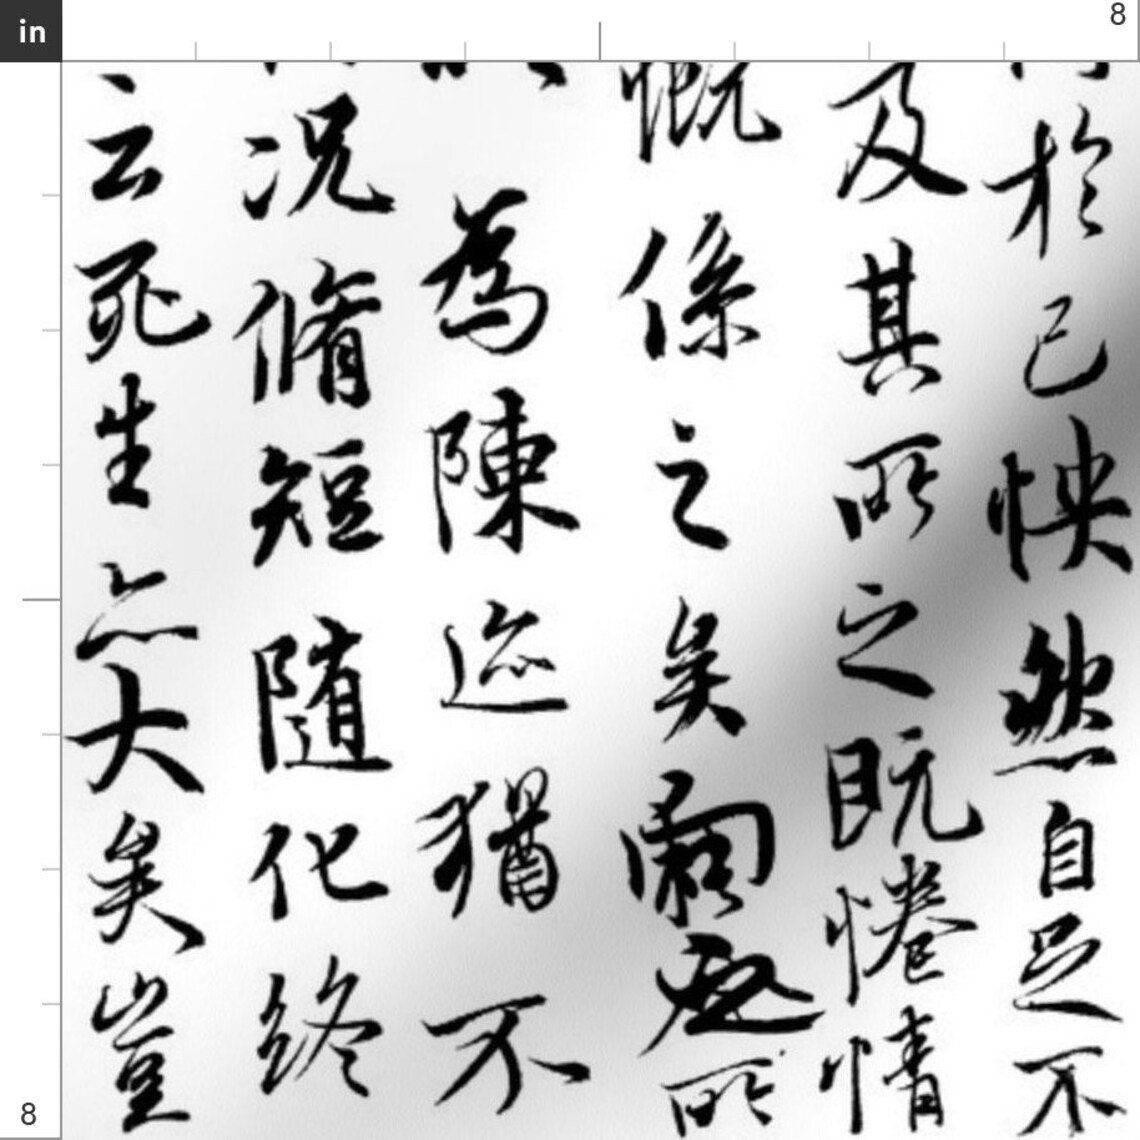 in
8
8
於己怏然自足不
及其所之既惓情
慨係之矣向之所
為陳迹猶不
况脩短随化終
云死生亦大矣豈